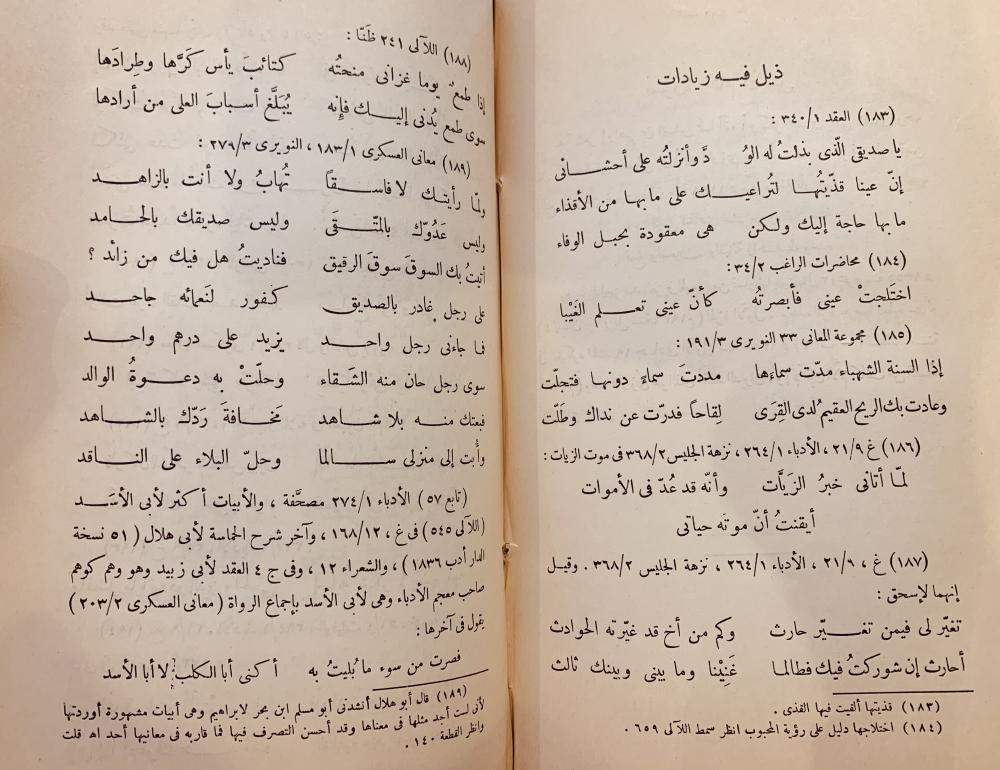 ذيل فيه زيادات
(١٨٣) العقد ٣٤٠/١ :
ياصديقى الّذى بذلتُ له الوُ دَّ وأنزلتُه على أحشائى
إنّ عينا قذّيتُها لتُراعيك على مابها من الأقذاء
مابها حاجة إليك ولكن هى معقودة بحبل الوفاء
(١٨٤) محاضرات الراغب ٣٤/٢ :
اختَلجتْ عينى فأبصرتُه كأنّ عينى تعلم الغَيْبا
(١٨٥) مجموعة المعانى ٣٣ النويرى ١٩١/٣ :
إذا السنة الشهباء مدّت سماءها مددتَ سماءً دونها فتجلّت
وعادت بك الريح العقيم لدى القِرَى لِقاحاً فدرّت عن نداك وطَلّت
(١٨٦) غ ٢١/٩ ، الأدباء ٢٦٤/١ ، نزهة الجليس ٣٦٨/٢ فى موت الزيات :
لمّا أتانى خبرُ الزَيّات وأنّه قد عُدّ فى الأموات
أيقنتُ أنّ موتَه حياتى
(١٨٧) غ ، ٢١/٩ ، الأدباء ٢٦٤/١ ، نزهة الجليس ٣٦٨/٢ . وقيل
إنهما لإسحق :
تغيّر لى فيمن تغيّر حارث وكم من أخ قد غيّرته الحوادث
أحارث إن شوركتُ فيك فطالما غَنِيْنا وما بينى وبينك ثالث
(١٨٣) قذيتها ألقيت فيها القذى .
(١٨٤) اختلاجها دليل على رؤية المحبوب انظر سمط اللآلى ٦٥٩ .
(١٨٨) اللآلى ٢٤١ ظَنّا :
إذا طمعٌ يوما غزانى منحتُه كتائبَ يأس كَرَّها وطِرادَها
سوى طمع يُدنى إليك فإنه يُبَلَّغ أسبابَ العلى من أرادها
(١٨٩) معانى العسكرى ١٨٣/١ ، النويرى ٢٧٩/٣ :
ولمّا رأيتك لا فاسقاً تُهابُ ولا أنت بالزاهد
وليس عَدُوّك بالمتّقَى وليس صديقك بالحامد
أتيتُ بك السوقَ سوقَ الرقيق فناديتُ هل فيك من زائد ؟
على رجل غادر بالصديق كفور لنَعمائه جاحد
فما جاءنى رجل واحد يزيد على درهم واحد
سوى رجل حان منه الشَقاء وحلّتْ به دعوةُ الوالد
فبعتك منه بلا شاهد مَخافةَ رَدّك بالشاهد
وأُبت إلى منزلى سالما وحلّ البلاء على الناقد
(تابع ٥٧) الأدباء ٢٧٤/١ مصحَّفة ، والأبيات أكثر لأبى الأسَد
(اللآلى ٥٤٥) فى غ ، ١٦٨/١٢ ، وآخر شرح الحماسة لأبى هلال (٥١ نسخة
الدار أدب ١٨٣٦) ، والشعراء ١٢ ، وفى ج ٤ العقد لأبى زبيد وهو وهم كوهم
صاحب معجم الأدباء وهى لأبى الأسد بإجماع الرواة (معانى العسكرى ٢٠٣/٢)
يقول فى آخرها :
فصرت من سوء ما بُليتُ به أكنى أبا الكلب لا أبا الأسد
(١٨٩) قال أبو هلال أنشدنى أبو مسلم ابن بحر لابراهيم وهى أبيات مشهورة أوردتها
لأنى لست أجد مثلها فى معناها وقد أحسن التصرف فيها فما قاربه فى معانيها أحد اه قلت
وانظر القطعة ١٤٠ .